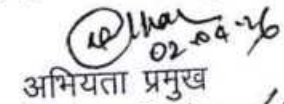 02-04-26
अभियता प्रमुख